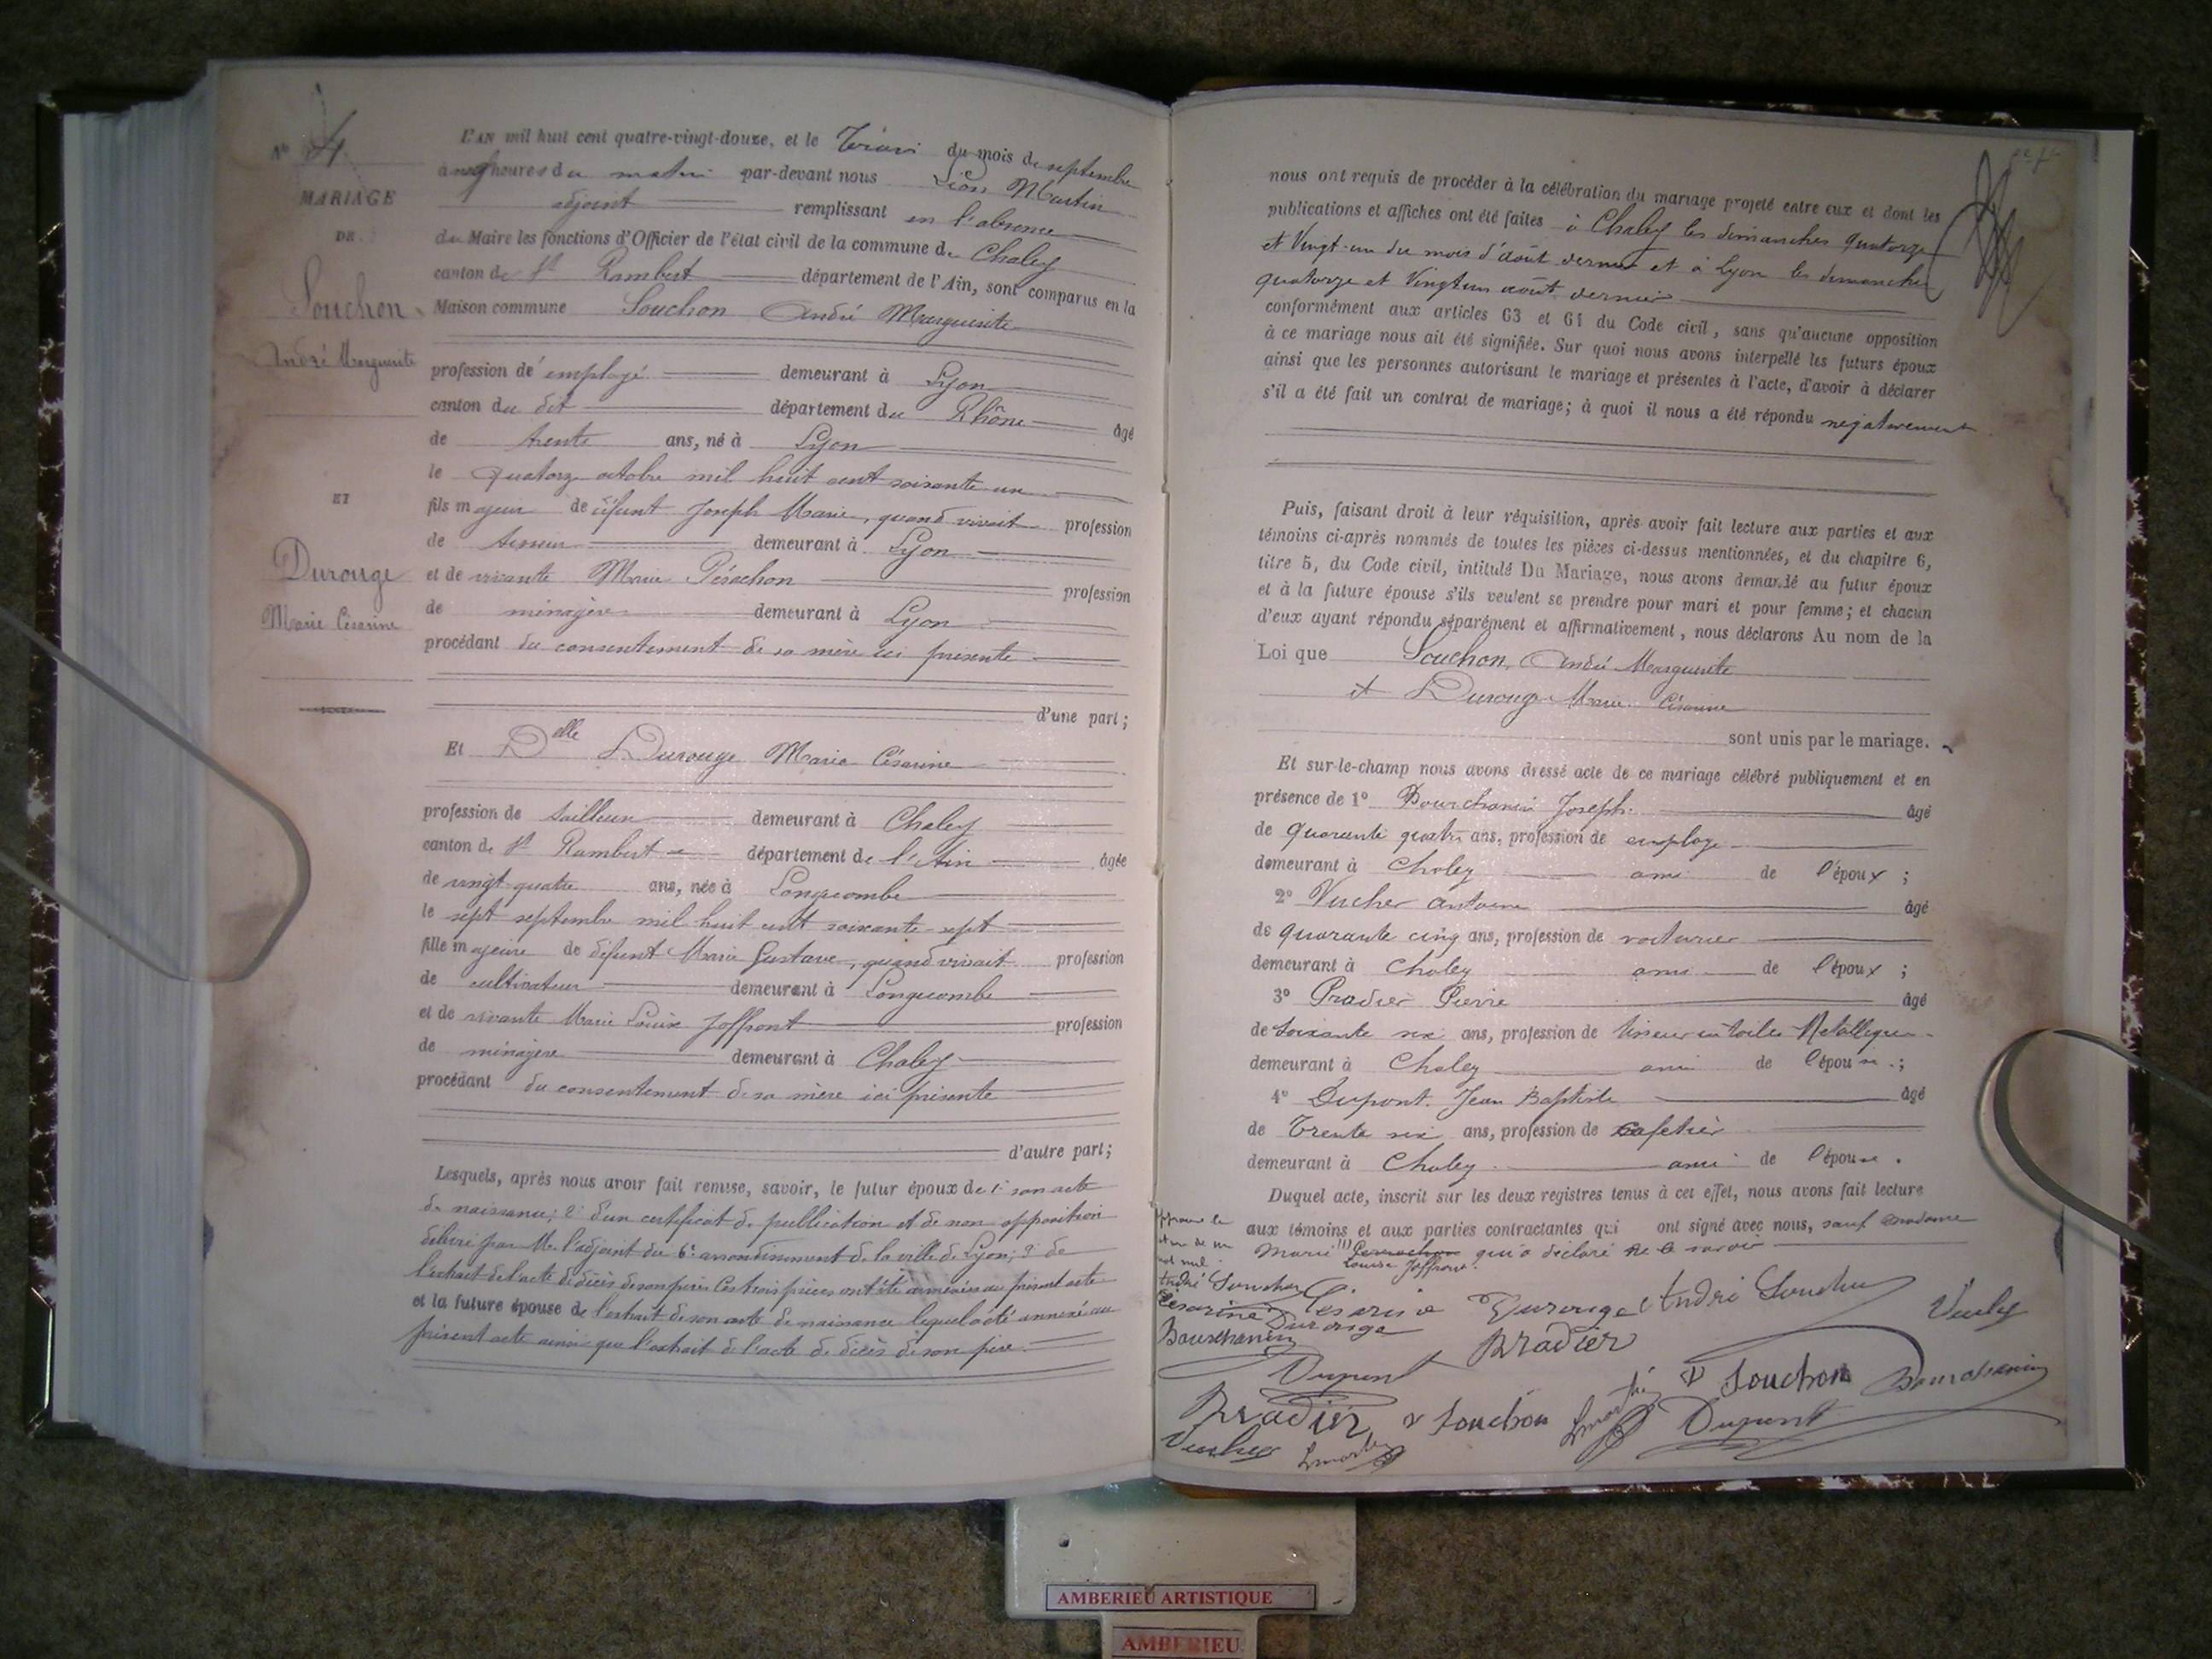 N° 4
MARIAGE
DE
Souchon
André Marguerite
ET
Durouge
Marie Césarine
L'AN mil huit cent quatre-vingt-douze, et le Trois du mois de septembre
à neuf heures du matin par-devant nous Léon Martin
adjoint remplissant en l'absence
du Maire les fonctions d'Officier de l'état civil de la commune de Chaley
canton de St Rambert département de l'Ain, sont comparus en la
Maison commune Souchon André Marguerite
profession d'employé demeurant à Lyon
canton du dit département du Rhône âgé
de trente ans, né à Lyon
le quatorze octobre mil huit cent soixante un
fils majeur de défunt Joseph Marie, quand vivait profession
de tisseur demeurant à Lyon
et de vivante Marie profession
de ménagère demeurant à Lyon
procédant du consentement de sa mère ici présente
d'une part;
Et Delle Durouge Marie Césarine
profession de tailleuse demeurant à Chaley
canton de St Rambert département de l'Ain âgée
de vingt quatre ans, née à Longecombe
le sept septembre mil huit cent soixante sept
fille majeure de défunt Marie Gustave, quand vivait profession
de cultivateur demeurant à Longecombe
et de vivante Marie Louise Joffront profession
de ménagère demeurant à Chaley
procédant du consentement de sa mère ici présente
d'autre part;
Lesquels, après nous avoir fait remise, savoir, le futur époux de 1° son acte
de naissance; 2° d'un certificat de publication et de non opposition
délivré par M. l'adjoint du 6e arrondissement de la ville de Lyon; 3° de
l'extrait de l'acte de décès de son père. Ces trois pièces ont été annexées au présent acte
et la future épouse de l'extrait de son acte de naissance lequel a été annexé au
présent acte ainsi que l'extrait de l'acte de décès de son père.
nous ont requis de procéder à la célébration du mariage projeté entre eux et dont les
publications et affiches ont été faites à Chaley les dimanches quatorze
et Vingt-un du mois d'août dernier et à Lyon les dimanches
quatorze et Vingt un août dernier
conformément aux articles 63 et 64 du Code civil, sans qu'aucune opposition
à ce mariage nous ait été signifiée. Sur quoi nous avons interpellé les futurs époux
ainsi que les personnes autorisant le mariage et présentes à l'acte, d'avoir à déclarer
s'il a été fait un contrat de mariage; à quoi il nous a été répondu négativement
Puis, faisant droit à leur réquisition, après avoir fait lecture aux parties et aux
témoins ci-après nommés de toutes les pièces ci-dessus mentionnées, et du chapitre 6,
titre 5, du Code civil, intitulé Du Mariage, nous avons demandé au futur époux
et à la future épouse s'ils veulent se prendre pour mari et pour femme; et chacun
d'eux ayant répondu séparément et affirmativement, nous déclarons Au nom de la
Loi que Souchon, André Marguerite
et Durouge Marie Césarine
sont unis par le mariage.
Et sur-le-champ nous avons dressé acte de ce mariage célébré publiquement et en
présence de 1° Bourchanin Joseph âgé
de quarante quatre ans, profession de employé
demeurant à Chaley ami de l'époux ;
2° Vucher Antoine âgé
de quarante cinq ans, profession de voiturier
demeurant à Chaley ami de l'époux ;
3° Pradier Pierre âgé
de soixante six ans, profession de tisseur en toiles Métalliques
demeurant à Chaley ami de l'épouse ;
4° Dupont Jean Baptiste âgé
de Trente six ans, profession de cafetier
demeurant à Chaley ami de l'épouse .
Duquel acte, inscrit sur les deux registres tenus à cet effet, nous avons fait lecture
aux témoins et aux parties contractantes qui ont signé avec nous, sauf madame
Marie (1) qui a déclaré ne le savoir
Louise Joffront.
André Souchon
Césarine Durouge
Bourchanin
Dupont
Pradier
Souchon
Césarine Durouge
André Souchon
Pradier
Souchon
Bourchanin
Dupont
AMBERIEU ARTISTIQUE
AMBERIEU